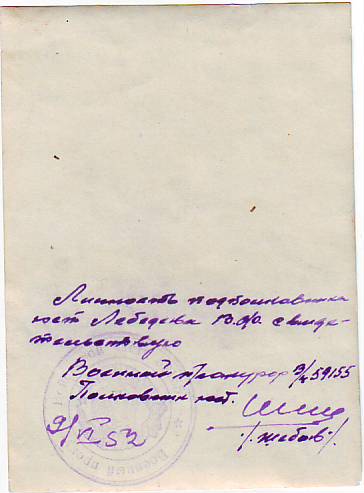 Личность подполковника
юст Лебедева В.Ф. свиде-
тельствую
Военный прокурор в/ч 59155
Полковник юст.
9/VI 52